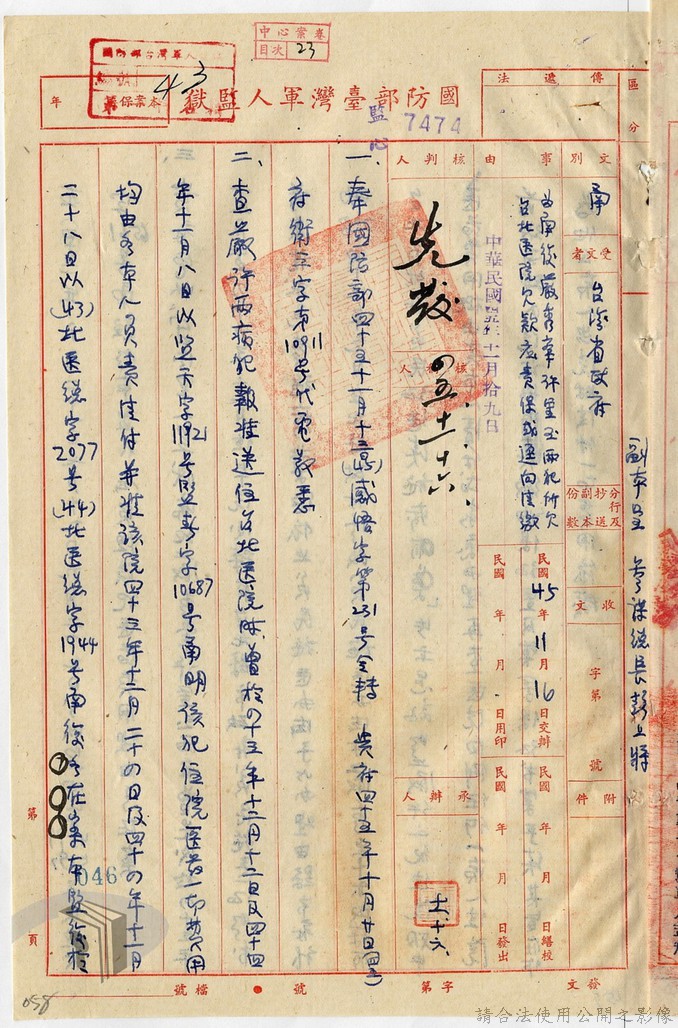 國防部臺灣軍人監獄
監
7474
中心業專
目次 23
國防部台灣軍人
本案保
43
年
區分
傳遞法
文別
函
受文者
台灣省政府
副本呈 參謀總長彭上將
分行及抄送副本份數
收文 字第 號
附件
事由
為函復嚴秀峯許里玉兩犯所欠
台北医院欠款应責保或逕向
民國45年11月16日交辦
民國 年 月 日繕校
民國 年 月 日用印
民國 年 月 日發出
中華民國 十一月拾九日
核判人
先發
四五十一十六
核
承辦人
十六
一、奉國防部四十五十一月十三 字第231號令轉 貴府四十五年十月廿日
府衛三字第10911號代電敬悉
二、查嚴許兩病犯報准送住台北医院時曾於四十三年十二月十三日及四十四
年十一月八日以監天字11921號監 字10687號函明該犯住院医药一切費用
均由各本人負責 付并准該院四十三年十二月二十四日及四十四年十一月
二十八日以(43)北医總字2077號(44)北医總字1944號函復各在案本監
046
第 頁
發文 字第 號
檔號
058
請合法使用公開之影像